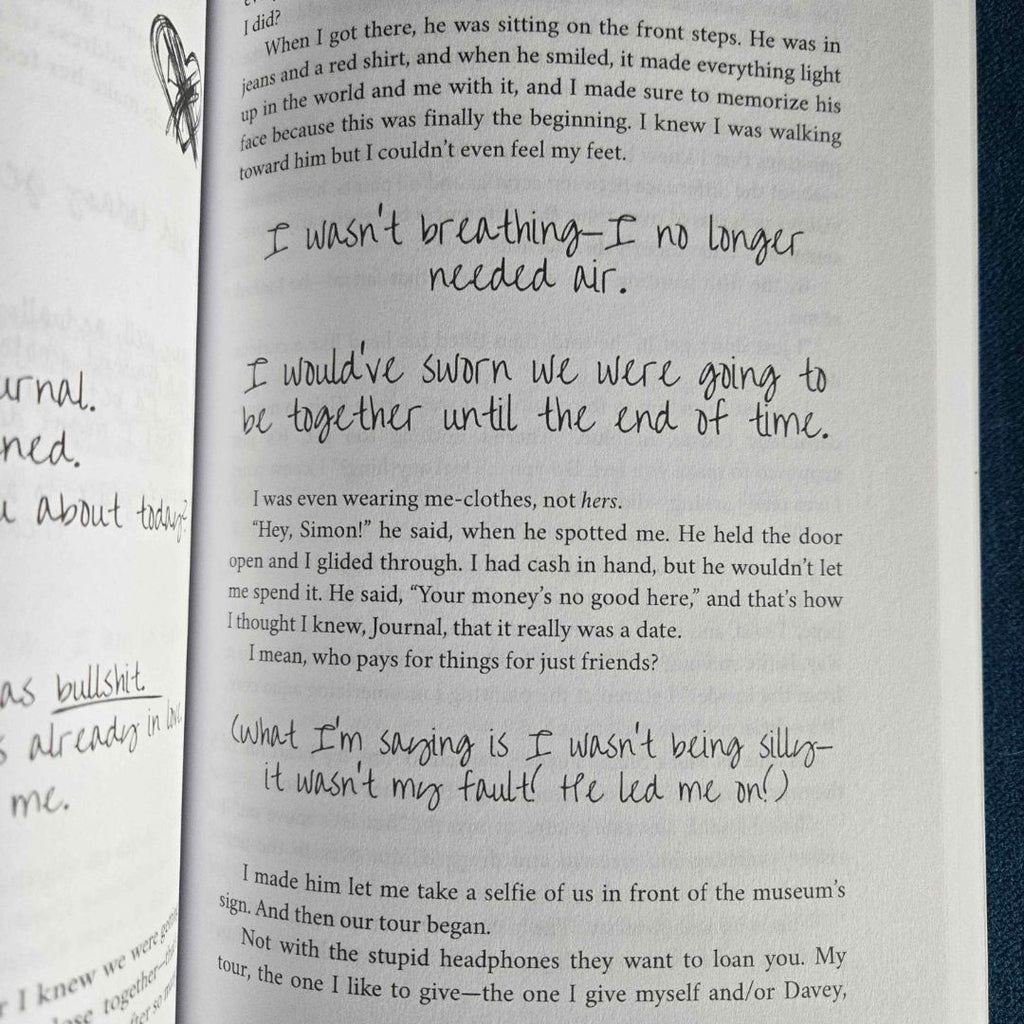 urnal.
ned.
about today?
as bullshit.
already in love
me.
r I knew we were
together
I did?
When I got there, he was sitting on the front steps. He was in
jeans and a red shirt, and when he smiled, it made everything light
up in the world and me with it, and I made sure to memorize his
face because this was finally the beginning. I knew I was walking
toward him but I couldn't even feel my feet.
I wasn't breathing—I no longer
needed air.
I would've sworn we were going to
be together until the end of time.
I was even wearing me-clothes, not hers.
“Hey, Simon!” he said, when he spotted me. He held the door
open and I glided through. I had cash in hand, but he wouldn't let
me spend it. He said, “Your money's no good here,” and that's how
I thought I knew, Journal, that it really was a date.
I mean, who pays for things for just friends?
(What I'm saying is I wasn't being silly—
it wasn't my fault! He led me on!)
I made him let me take a selfie of us in front of the museum's
sign. And then our tour began.
Not with the stupid headphones they want to loan you. My
tour, the one I like to give—the one I give myself and/or Davey,